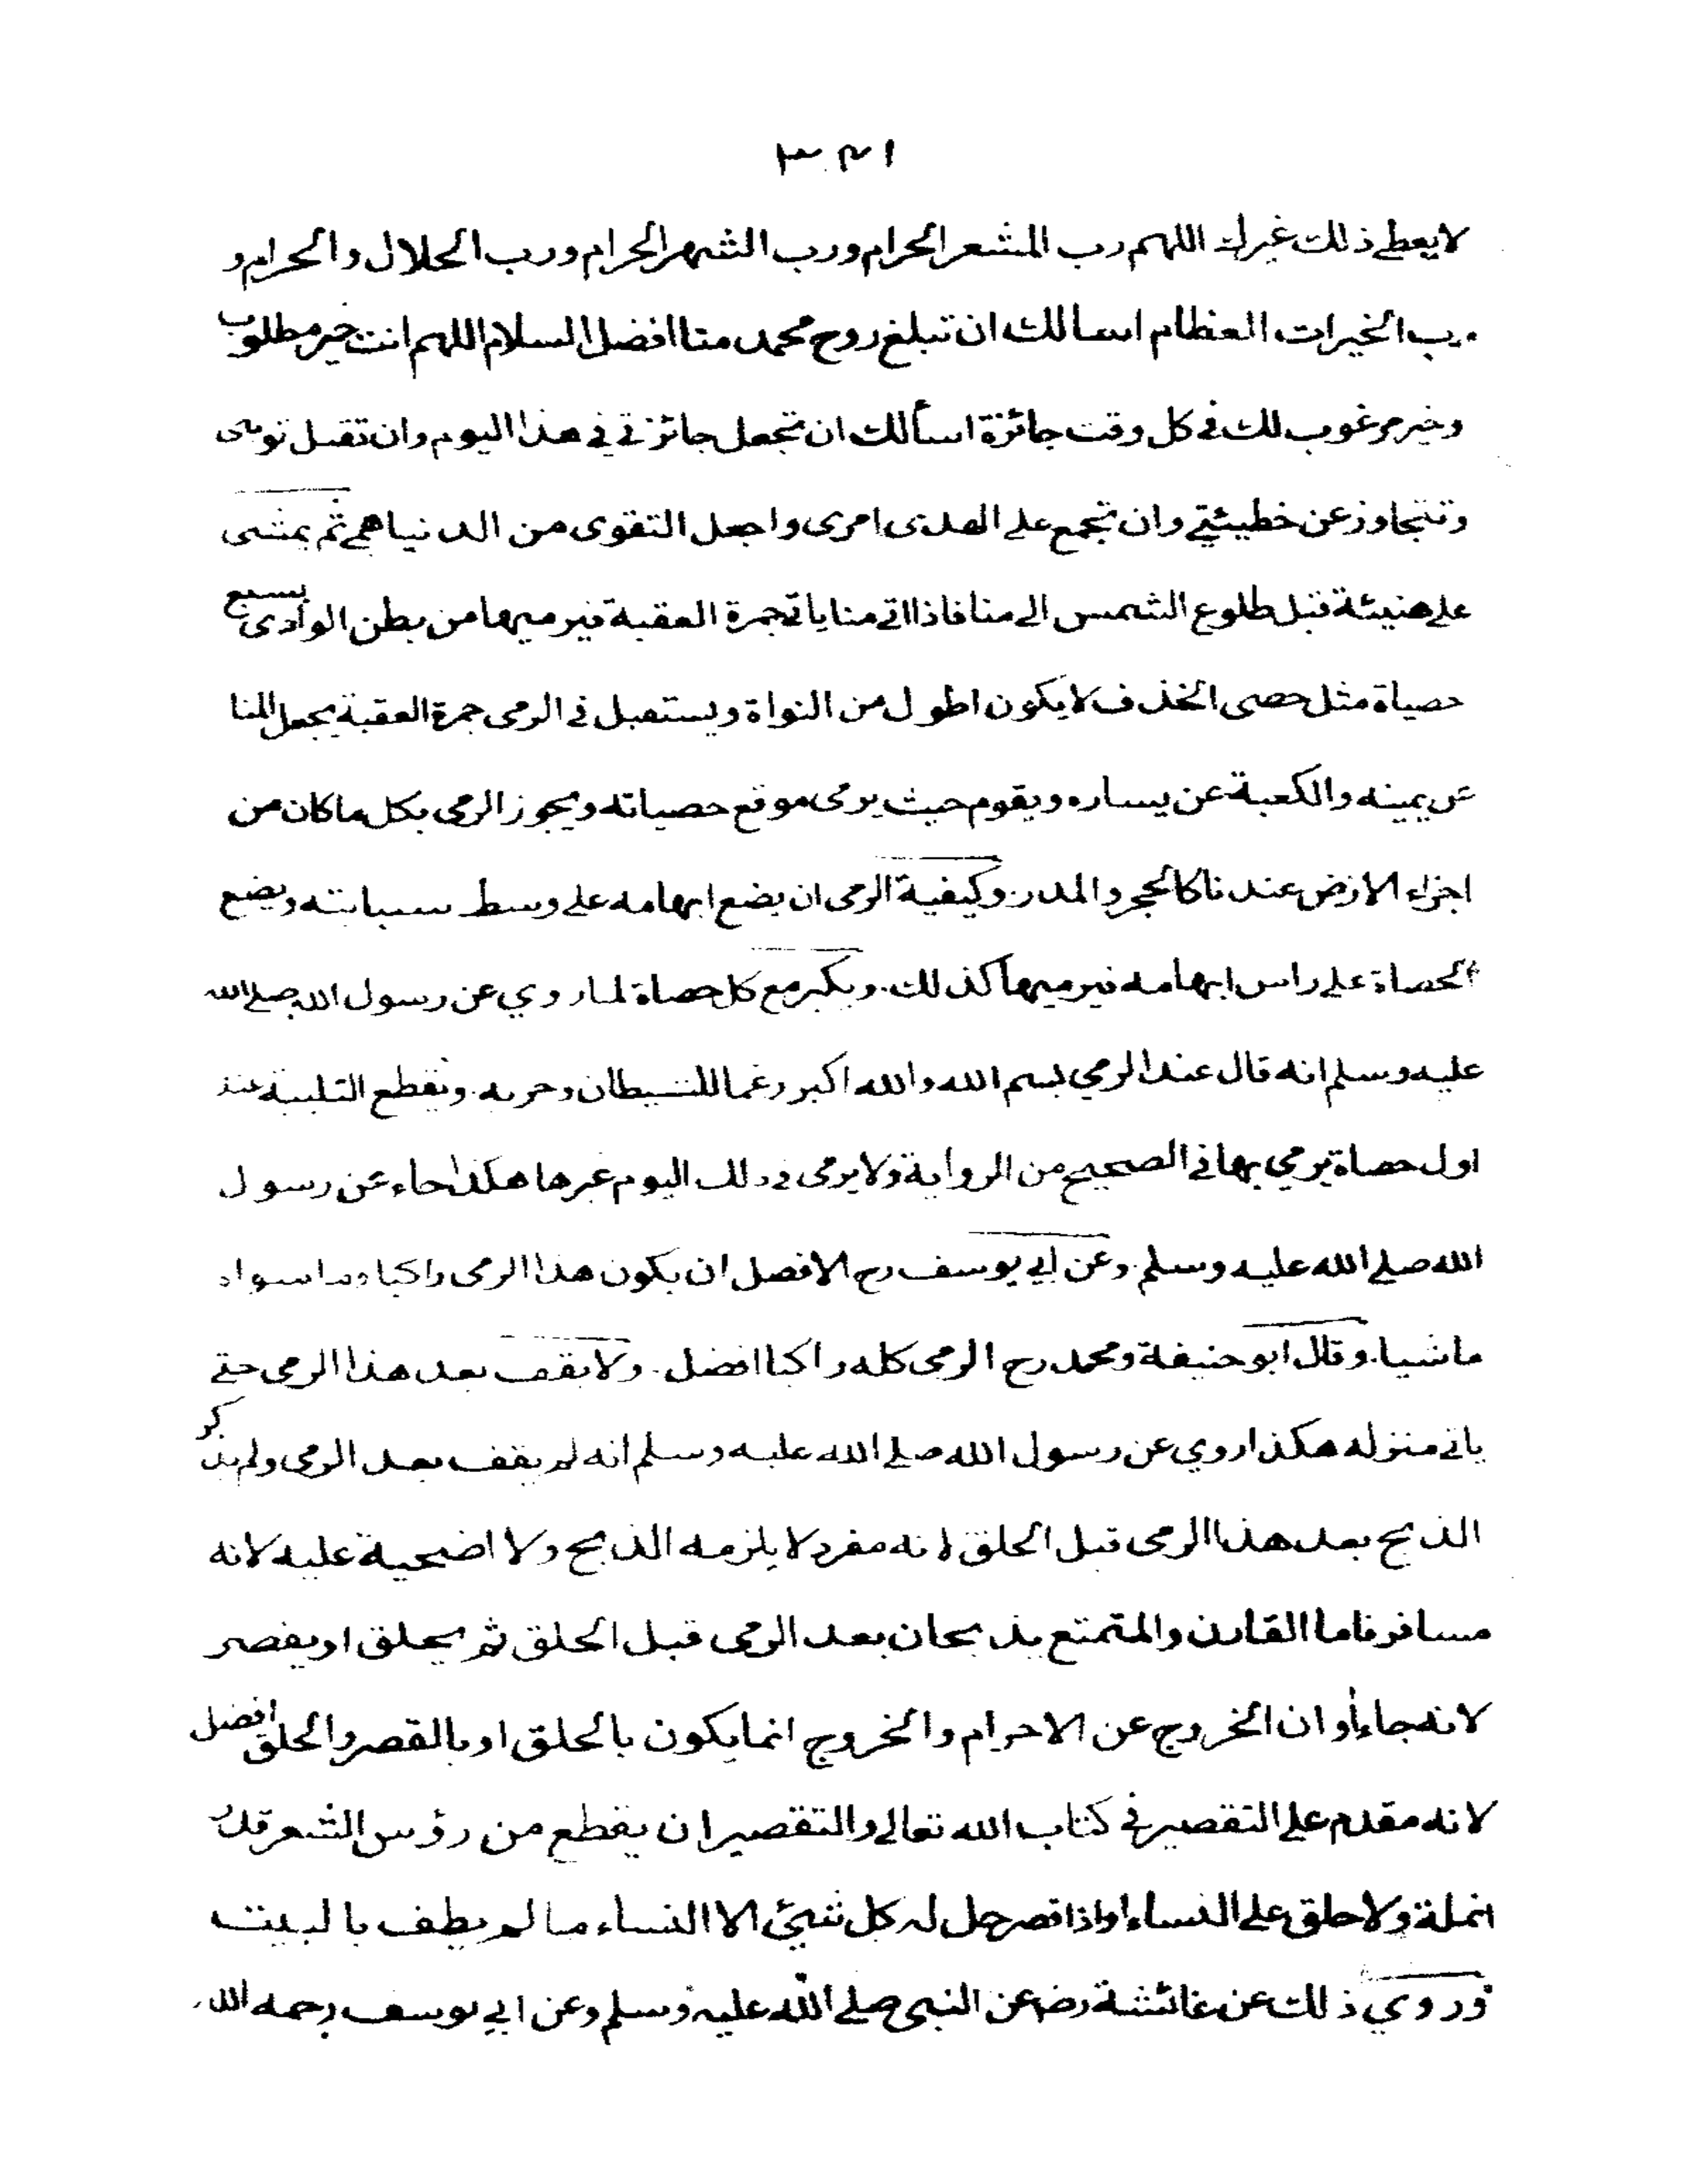 ١٣٤
لا يعطي ذلك غيرك اللهم رب المشعر الحرام ورب الشهر الحرام ورب الحلال والحرام و
رب الخيرات العظام اسالك ان تبلغ روح محمد منا افضل السلام اللهم انت خير مطلوب
وخير مرغوب لك في كل وقت جائزة اسألك ان تجعل جائزتي في هذا اليوم وان تقبل توبتى
وتتجاوز عن خطيئتي وان تجمع على الهدى امرى واجعل التقوى من الدنيا همي ثم يمشى
على هنيئة قبل طلوع الشمس الى منا فاذا اتى منا ياتي جمرة العقبة فيرميها من بطن الوادى بسبع
حصياة مثل حصى الخذف لا يكون اطول من النواة ويستقبل في الرمى جمرة العقبة يجعل المنا
عن يمينه والكعبة عن يساره ويقوم حيث يرمى موقع حصياته ويجوز الرمى بكل ما كان من
اجزاء الارض عندنا كالحجر والمدر وكيفية الرمى ان يضع ابهامه على وسط سبابته ويضع
الحصاة على راس ابهامه فيرميها كذلك. ويكبر مع كل حصاة لما روي عن رسول الله صلى الله
عليه وسلم انه قال عند الرمي بسم الله والله اكبر رغما للشيطان وحزبه. ويقطع التلبية عند
اول حصاة يرمي بها في الصحيح من الرواية ولا يرمى في ذلك اليوم غيرها هكذا جاء عن رسول
الله صلى الله عليه وسلم. وعن ابي يوسف رح الافضل ان يكون هذا الرمى راكبا وما سواه
ماشيا. وقال ابو حنيفة ومحمد رح الرمى كله راكبا افضل. ولا يقف بعد هذا الرمى حتى
ياتي منزله هكذا روي عن رسول الله صلى الله عليه وسلم انه لم يقف بعد الرمى ولم يذكر
الذبح بعد هذا الرمى قبل الحلق لانه مفرد لا يلزمه الذبح ولا اضحية عليه لانه
مسافر فاما القارن والمتمتع يذبحان بعد الرمى قبل الحلق ثم يحلق او يقصر
لانه جاء أوان الخروج عن الاحرام والخروج انما يكون بالحلق او بالقصر والحلق افضل
لانه مقدم على التقصير في كتاب الله تعالى والتقصير ان يقطع من رؤس الشعر قدر
انملة ولا حلق على النساء واذا قصر حل له كل شيئ الا النساء ما لم يطف بالبيت
وروي ذلك عن عائشة رض عن النبى صلى الله عليه وسلم وعن ابي يوسف رحمه الله